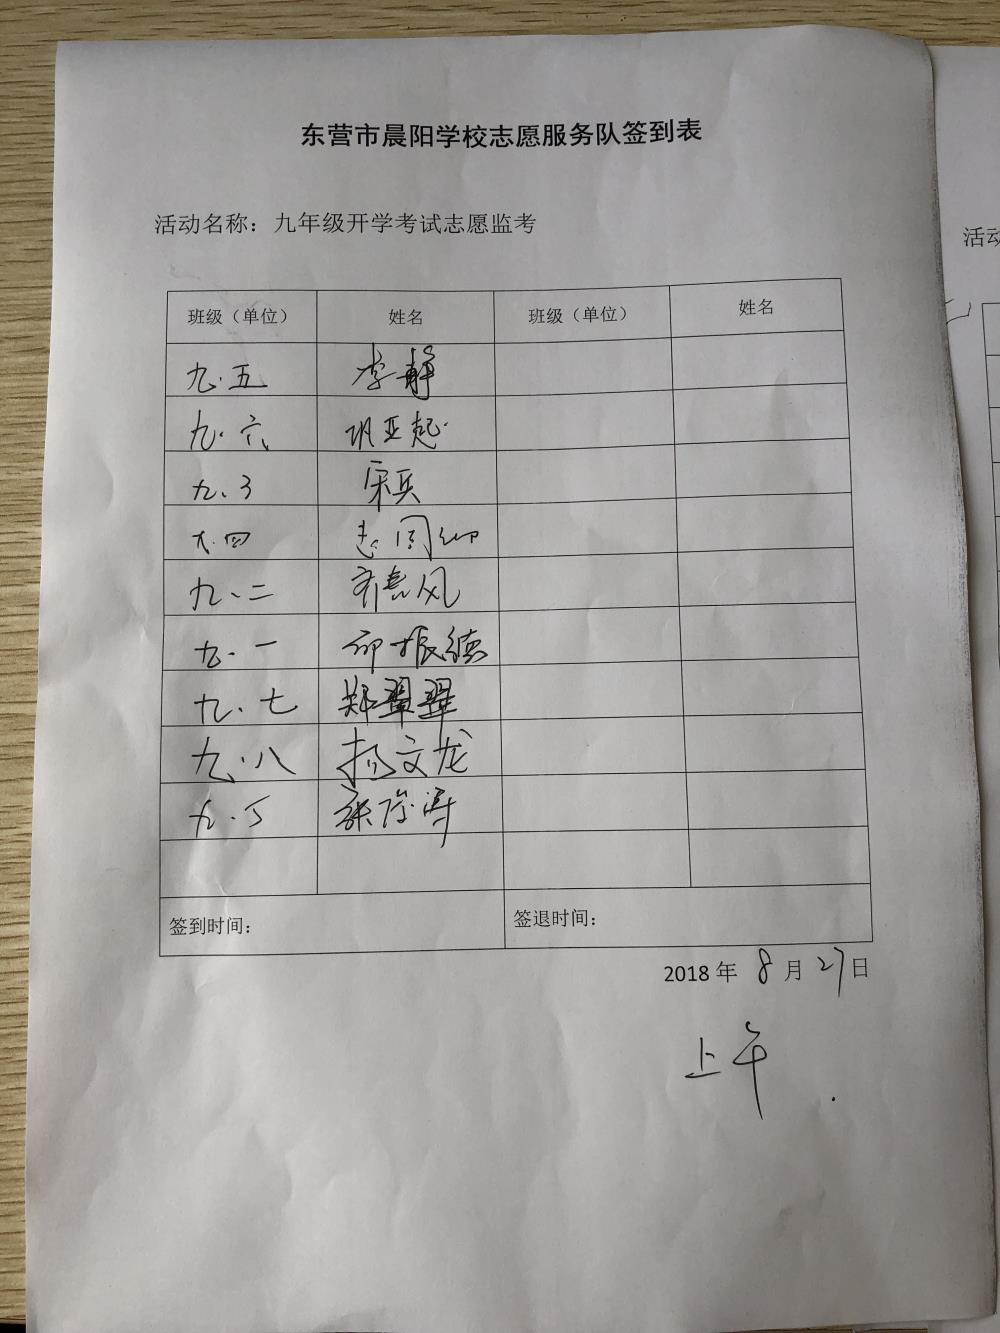 东营市晨阳学校志愿服务队签到表
活动名称：九年级开学考试志愿监考
班级（单位） 姓名 班级（单位） 姓名
九.五 李静
九.六 巩亚起
九、3 宋兵
九.四
九、二 齐春风
九.一 振德
九.七 郑翠翠
九.八 杨文龙
九. 张 涛
签到时间： 签退时间：
2018 年 8 月 27 日
上午
活动